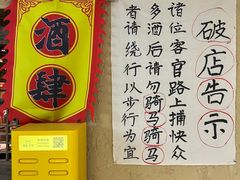 破店告示
诸位客官路上捕快众
多酒后请勿骑马骑马
者请绕行以步行为宜
酒肆